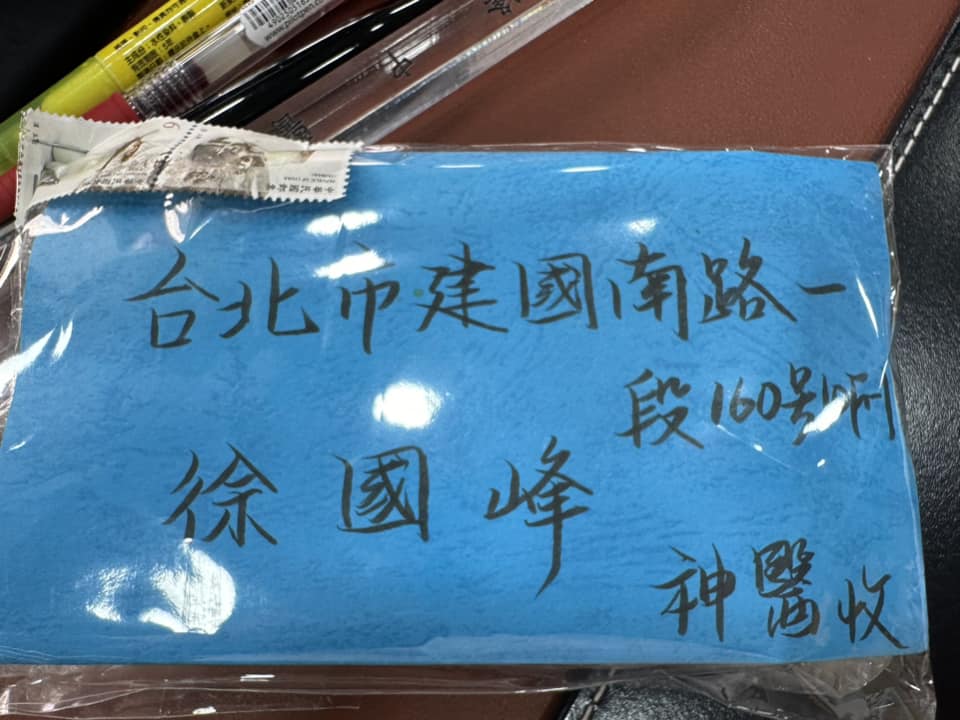 台北市建國南路一
段160号1F
徐國峰
神醫收
中華民國郵票